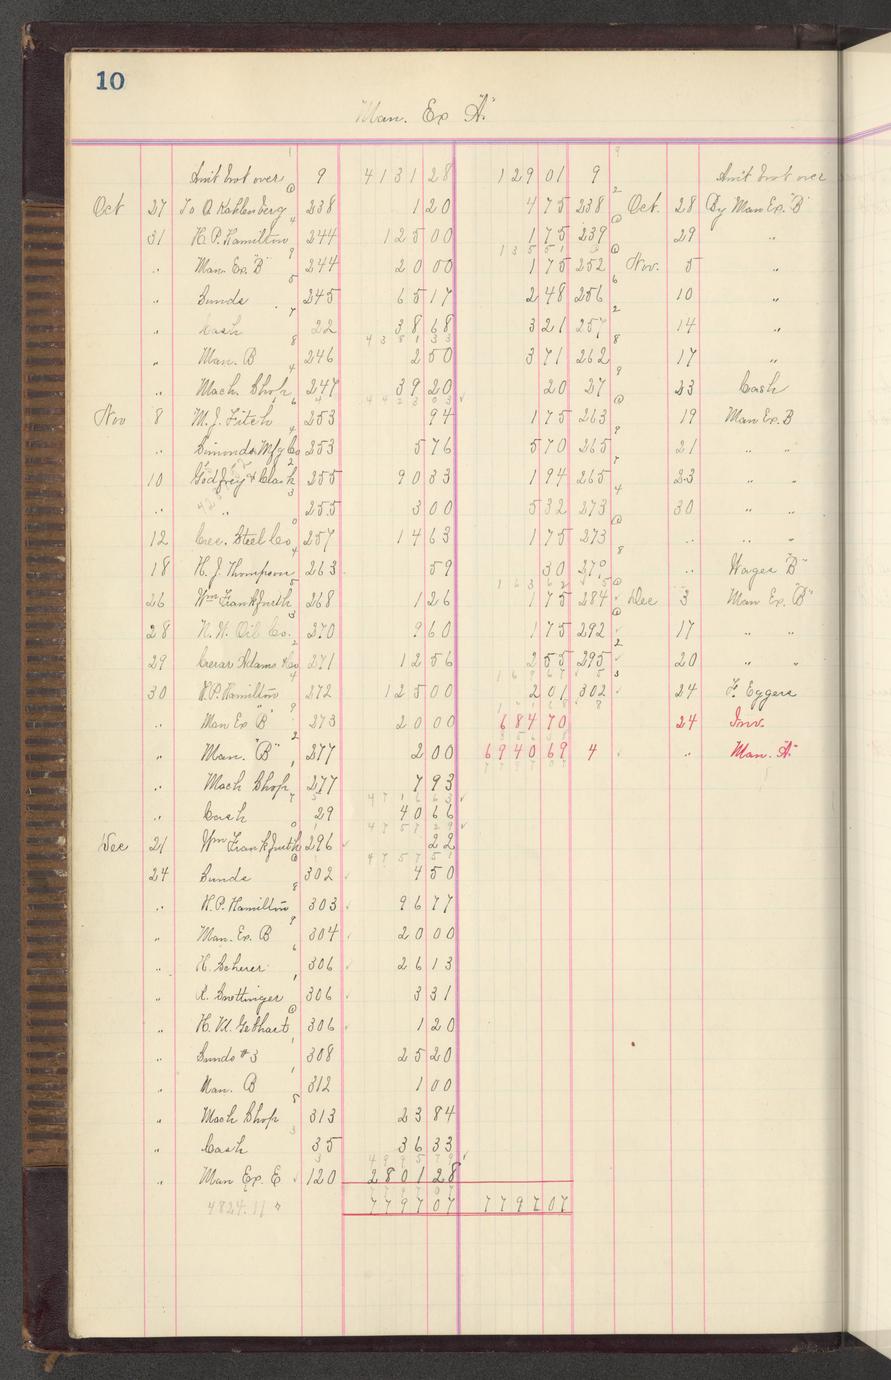 10
Man. Ex "A"
Am't brot over 9 4131 28 129 01 9 Am't brot over
Oct 27 To A Kahlenberg 238 1 20 4 75 238 Oct. 28 By Man Ex. "B"
31 H. P. Hamilton 244 125 00 1 75 239 29 "
" Man. Ex. "B" 244 20 00 1 75 252 Nov. 5 "
" Sunds 245 65 17 2 48 256 10 "
" Cash 22 38 68 3 21 257 14 "
" Man. B 246 2 50 3 71 262 17 "
" Mach. Shop 247 39 20 20 27 23 Cash
Nov 8 M. J. Fitch 253 94 1 75 263 19 Man Ex. B
" Simonds Mfg Co 253 5 76 5 70 265 21 " "
10 Godfrey & Clark 255 90 33 1 94 265 23 " "
" " 255 3 00 5 32 273 30 " "
12 Cres. Steel Co 257 14 63 1 75 273 " " "
18 H. J. Thompson 263 59 30 270 " Wages "B"
26 Wm Frankfurth 268 1 26 1 75 284 Dec 3 Man Ex. "B"
28 N. W. Oil Co. 270 9 60 1 75 292 17 " "
29 Crerar Adams & Co 271 12 56 2 55 295 20 " "
30 H. P. Hamilton 272 125 00 2 01 302 24 F. Eggers
" Man Ex "B" 273 20 00 684 70 24 Inv.
" Man. "B" 277 2 00 6940 69 4 " Man. "A"
" Mach Shop 277 7 93
" Cash 29 40 66
Dec 21 Wm Frankfurth 296 22
24 Sunds 302 4 50
" H. P. Hamilton 303 96 77
" Man. Ex. B 304 20 00
" H. Scherer 306 26 13
" 306 3 31
" 306 1 20
" Sunds #3 308 25 20
" Man. B 312 1 00
" Mach Shop 313 23 84
" Cash 35 36 33
" Man Ex. E 120 2801 28
4824.11 7797 07 7797 07